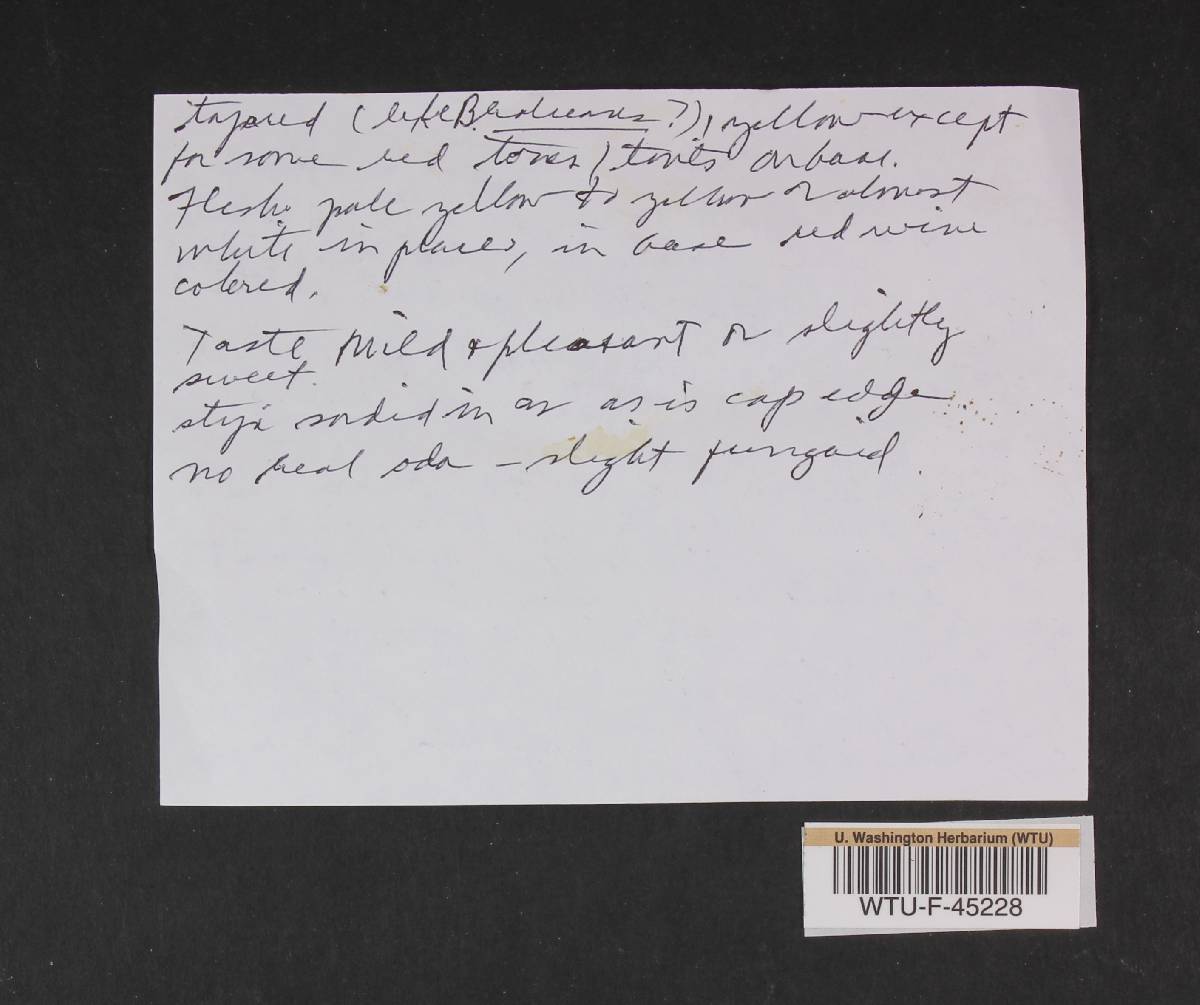 tapered (like B. ?), yellow except
for some red tones / tints on base.
Flesh: pale yellow to yellow or almost
white in places, in base red wine
colored.
Taste mild & pleasant or slightly
sweet.
as is cap edge.
no real odor - slight fungoid.
U. Washington Herbarium (WTU)
WTU-F-45228